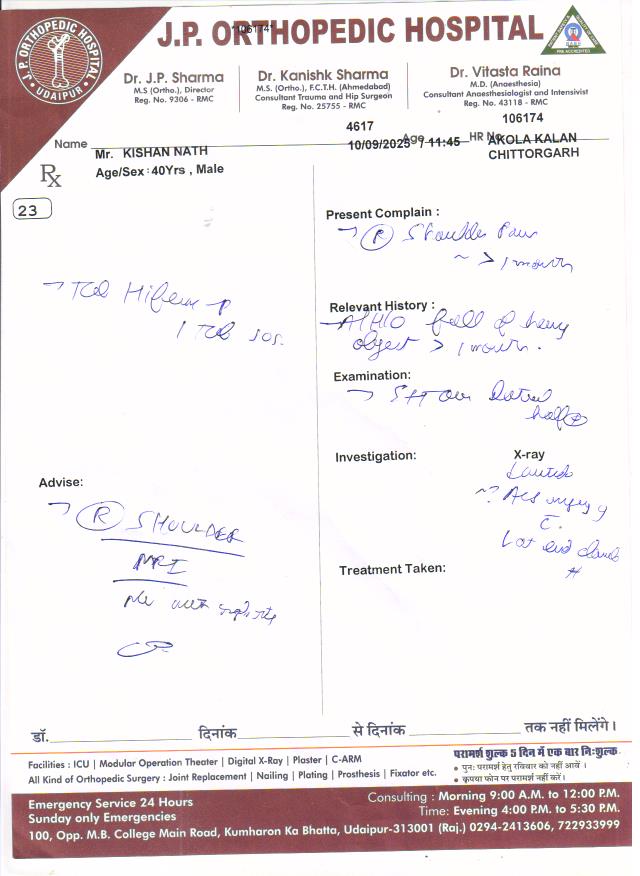 J.P. ORTHOPEDIC HOSPITAL
UDAIPUR
*106174*
J.P. ORTHOPEDIC HOSPITAL
Dr. J.P. Sharma
M.S (Ortho.), Director
Reg. No. 9306 - RMC
Dr. Kanishk Sharma
M.S. (Ortho.), F.C.T.H. (Ahmedabad)
Consultant Trauma and Hip Surgeon
Reg. No. 25755 - RMC
Dr. Vitasta Raina
M.D. (Anaesthesia)
Consultant Anaesthesiologist and Intensivist
Reg. No. 43118 - RMC
4617
106174
Name Mr. KISHAN NATH
10/09/2025 / 11:45
Age
HR No.
AKOLA KALAN
CHITTORGARH
Rx
Age/Sex : 40Yrs , Male
23
Present Complain :
→ (R) Shoulder Pain
~ > 1 month
→ Tab
1 Tab sos.
Relevant History :
A/H/O fall of heavy
object > 1 month.
Examination:
→ over
half
Investigation:
X-ray
Advise:
→ (R) SHOULDER
MRI
~? injury
Lat end
Treatment Taken:
डॉ. दिनांक से दिनांक तक नहीं मिलेंगे।
Facilities : ICU | Modular Operation Theater | Digital X-Ray | Plaster | C-ARM
All Kind of Orthopedic Surgery : Joint Replacement | Nailing | Plating | Prosthesis | Fixator etc.
परामर्श शुल्क 5 दिन में एक बार निःशुल्क
• पुनः परामर्श हेतु रविवार को नहीं आवें ।
• कृपया फोन पर परामर्श नहीं करें।
Emergency Service 24 Hours
Sunday only Emergencies
Consulting : Morning 9:00 A.M. to 12:00 P.M.
Time: Evening 4:00 P.M. to 5:30 P.M.
100, Opp. M.B. College Main Road, Kumharon Ka Bhatta, Udaipur-313001 (Raj.) 0294-2413606, 722933999